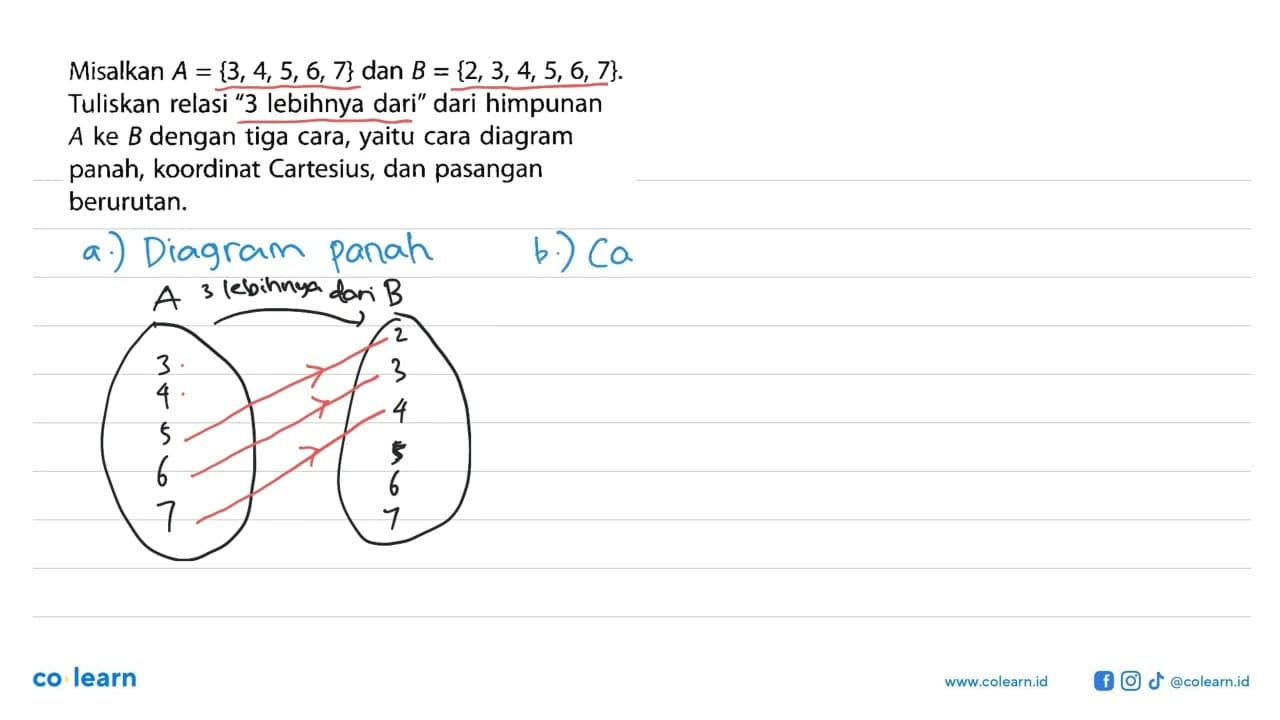 Misalkan A = {3, 4, 5, 6, 7} dan B = {2, 3, 4, 5, 6, 7}.
Tuliskan relasi "3 lebihnya dari" dari himpunan
A ke B dengan tiga cara, yaitu cara diagram
panah, koordinat Cartesius, dan pasangan
berurutan.
a.) Diagram panah
b.) Ca
A 3 lebihnya dari B
3
4
5
6
7
2
3
4
5
6
7
co learn
www.colearn.id
@colearn.id